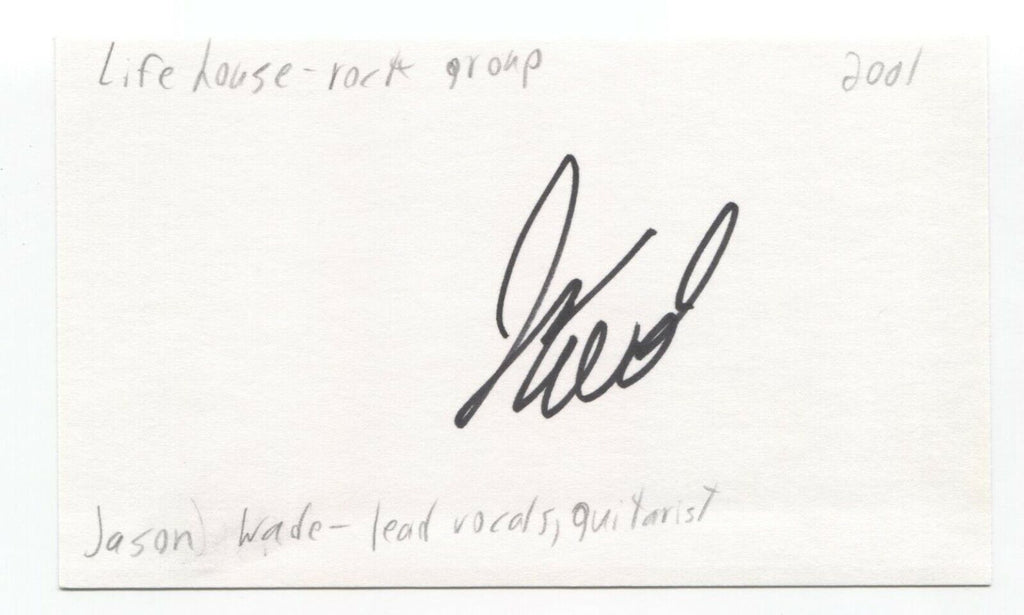 Lifehouse - rock group 2001
Jason Wade - lead vocals, guitarist